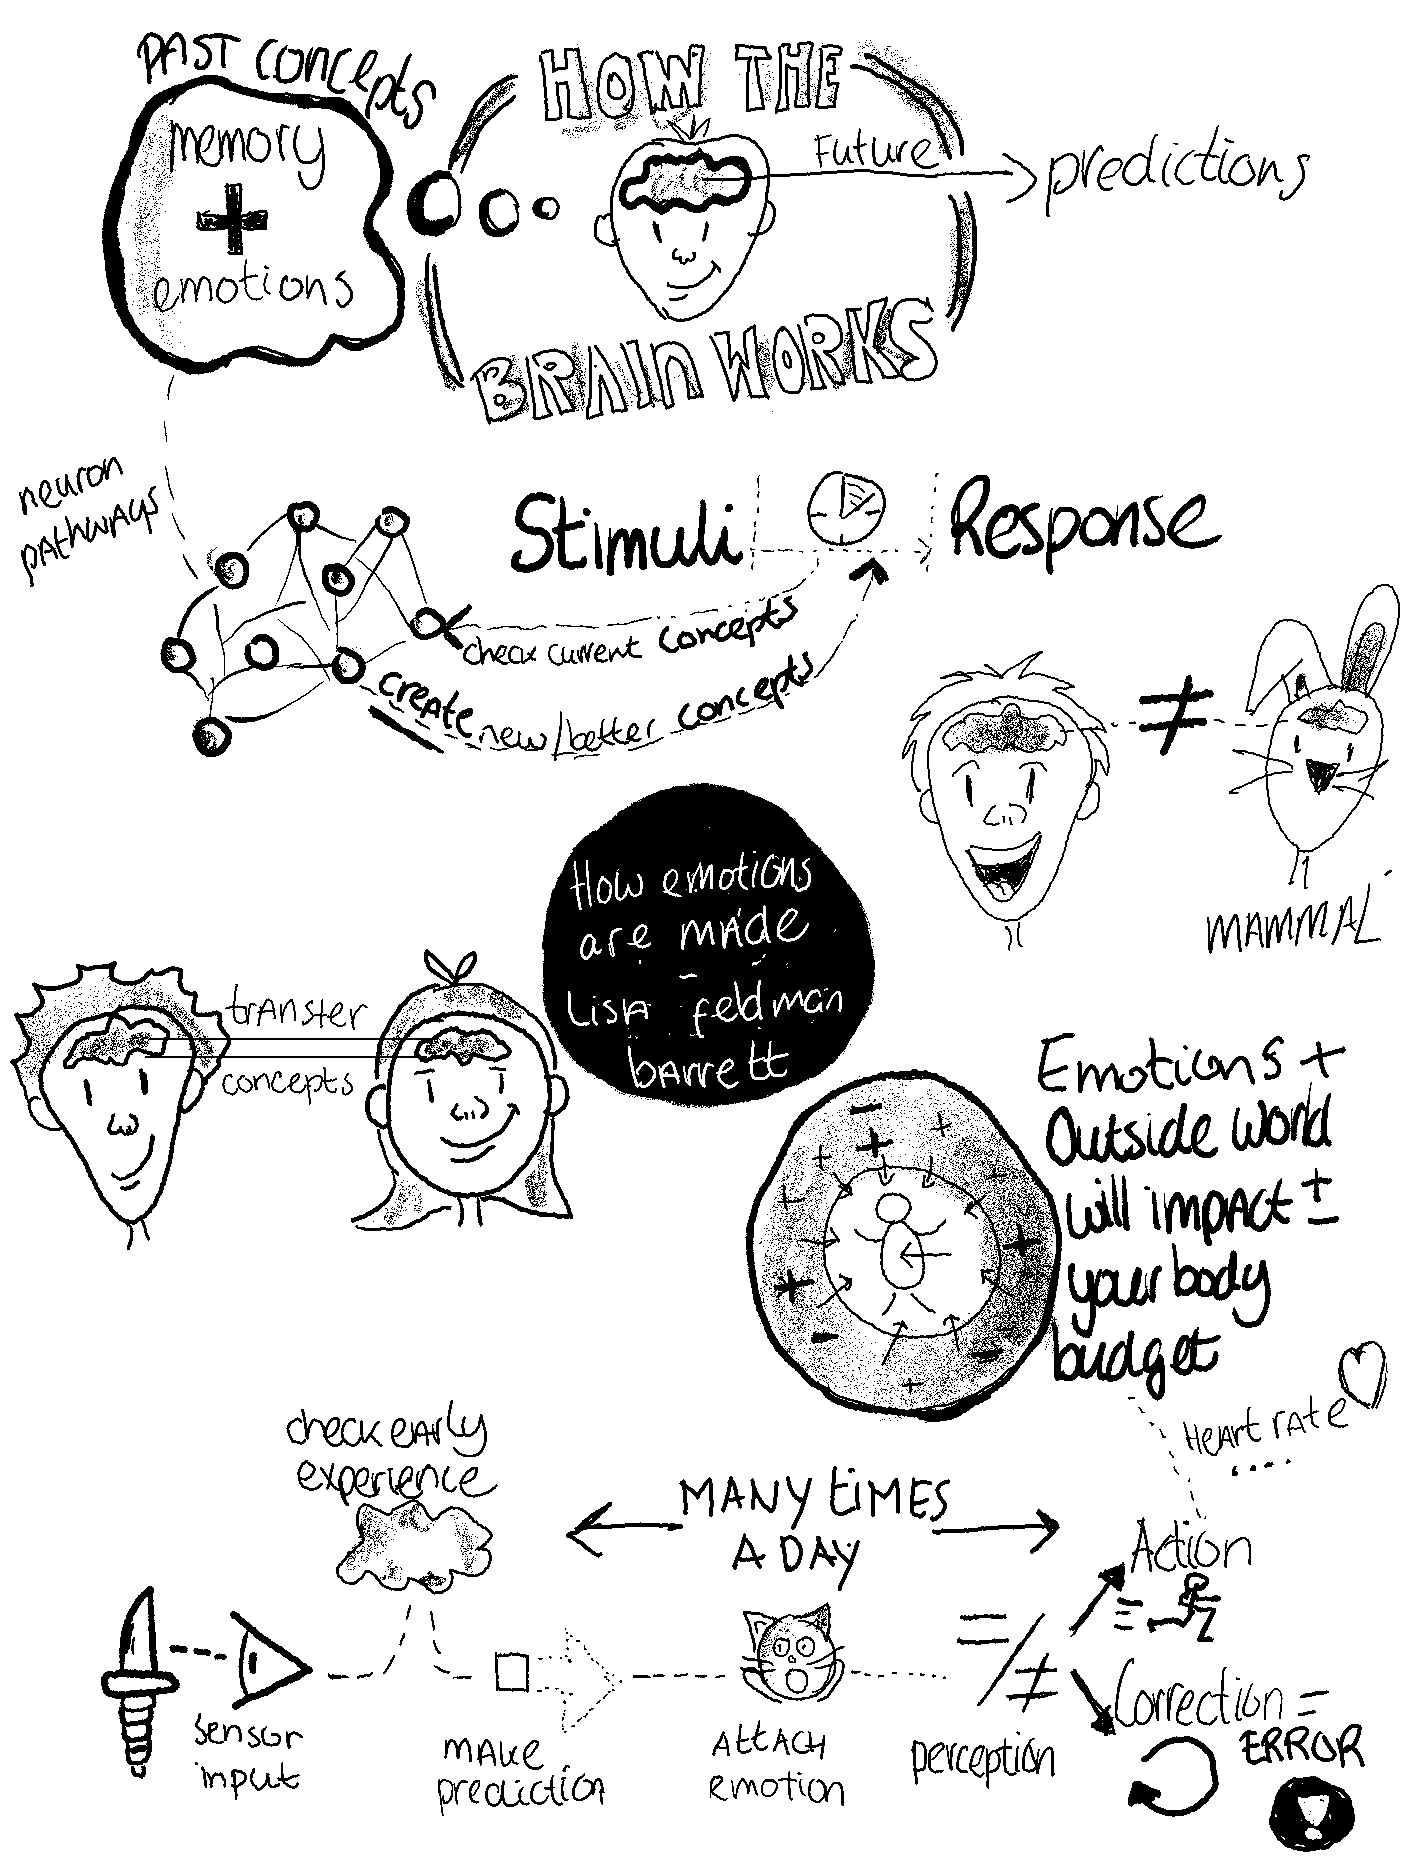 PAST concepts
memory
+
emotions
HOW THE
BRAIN WORKS
Future
predictions
neuron
pathways
Stimuli
Response
check current concepts
create new/better concepts
≠
MAMMAL
How emotions
are made
-
Lisa feldman
barrett
transfer
concepts
Emotions +
Outside world
will impact ±
your body
budget
Heart rate
....
check early
experience
MANY tiMES
A DAY
Action
sensor
input
make
prediction
Attach
emotion
=/≠
perception
Correction =
ERROR
!